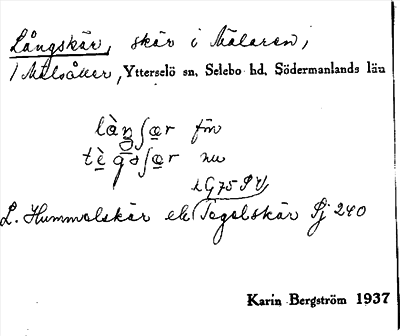 Långskär, skär i Mälaren,
/ Mälsåker, Ytterselö sn, Selebo hd, Södermanlands län
làŋʃær förr
tègəʃær nu
L. Hummelskär el. Tegelskär Sj 240
Karin Bergström 1937